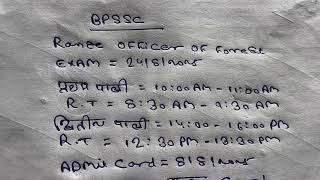 BPSSC
Range OFFicer OF Forest
EXAM = 24/8/2025
प्रथम पाली = 10:00 AM - 11:00AM
R.T = 8:30 AM - 9:30 AM
द्वितीय पाली = 14:00 - 16:00 PM
R.T = 12:30 PM - 13:30 PM
ADMit Card = 8/8/2025